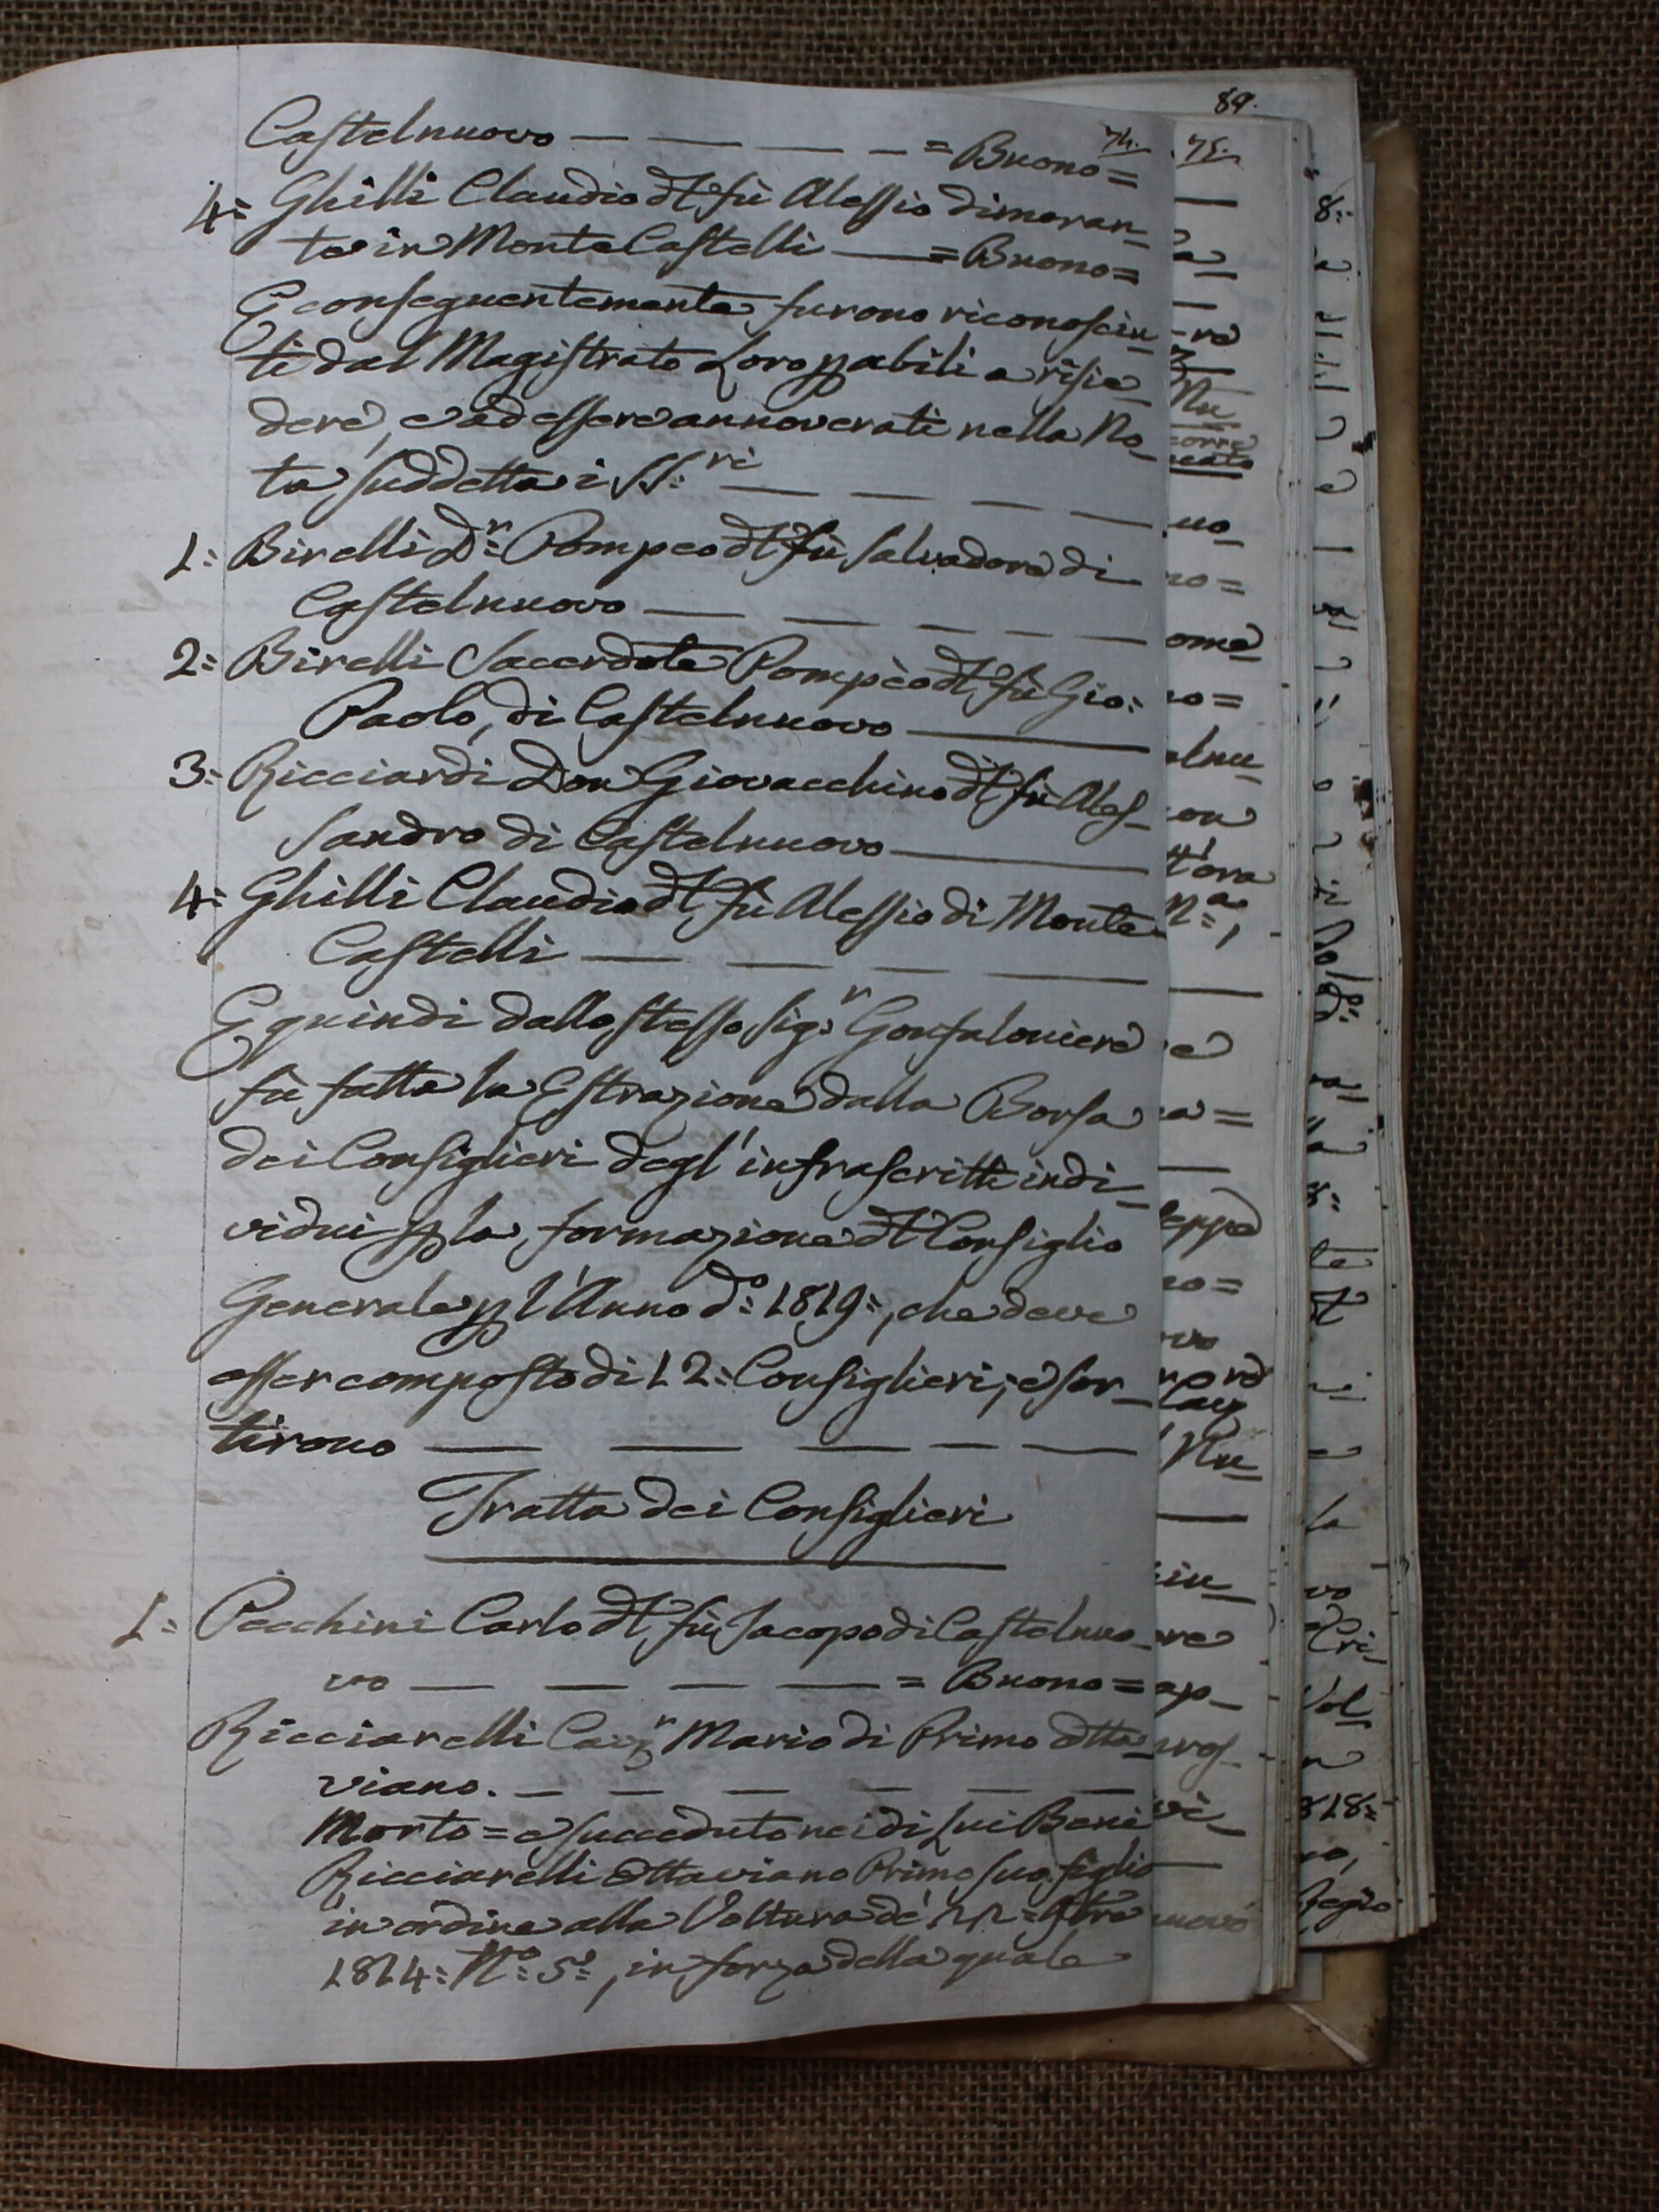 74.
Castelnuovo — — — — = Buono =
4= Ghilli Claudio dt fù Alessio dimoran_
te in Monte Castelli — = Buono =
E conseguentemente furono riconosciu_
ti dal Magistrato Loro pp abili a risie_
dere, e ad essere annoverati nella No_
ta suddetta i SS:ri — — — —
1= Birelli Dr= Pompeo dt fù Salvadore di
Castelnuovo — — — — —
2= Birelli Sacerdote Pompèo dt fù Gio:
Paolo, di Castelnuovo —
3= Ricciardi Don Giovacchino dt fù Ales_
sandro di Castelnuovo —
4= Ghilli Claudio dt fù Alessio di Monte
Castelli — — — —
E quindi dallo stesso Sig:r Gonfaloniere
fù fatta la Estrazione dalla Borsa
dei Consiglieri degl' infrascritti indi_
vidui pp la formazione dt Consiglio
Generale pp l'Anno do: 1819=, che deve
esser composto di 12= Consiglieri; e sor_
tirono — — — — —
Tratta dei Consiglieri
1= Pecchini Carlo dt fù Jacopo di Castelnuo_
vo — — — — = Buono =
Ricciarelli Cavr Mario di Primo Otta_
viano. — — — — — —
Morto = e succeduto nei di Lui Beni
Ricciarelli Ottaviano Primo suo figlio
in ordine alla Voltura de'
1814= No= 5=, in forza della quale
75.
89.